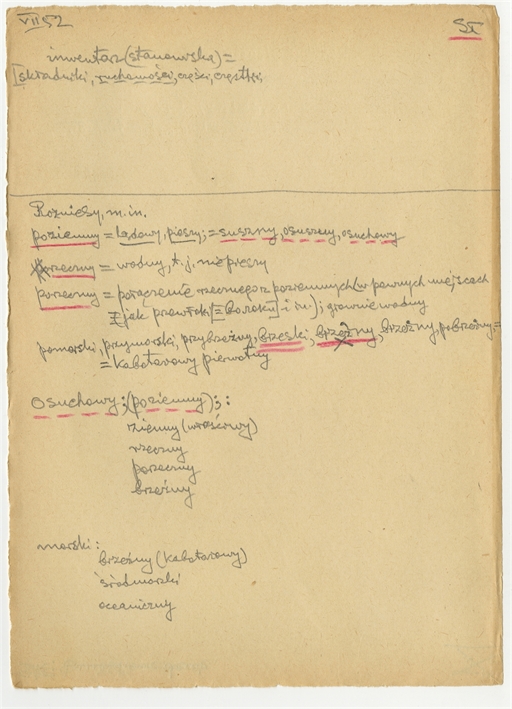 VII 52
SŁ
inwentarz (stanowiska) =
składniki, ruchomości, części, cząstki
Rozniesy, m.in.
poziemny = lądowy, pieszy; = suszny, osuszny, osuchowy
rzeczny = wodny, t.j. niepieszy
porzeczny = połączenie rzecznego z poziemnych (w pewnych miejscach
jak przewłoki [= i in.); głównie wodny
pomorski, przymorski, przybrzeżny, brzeski, brzeżny, brzeżny, pobrzeżny, =
= kabotażowy pierwotny
osuchowy; (poziemny); :
ziemny (właściwy)
rzeczny
porzeczny
brzeżny
morski:
brzeżny (kabotażowy)
śródmorski
oceaniczny